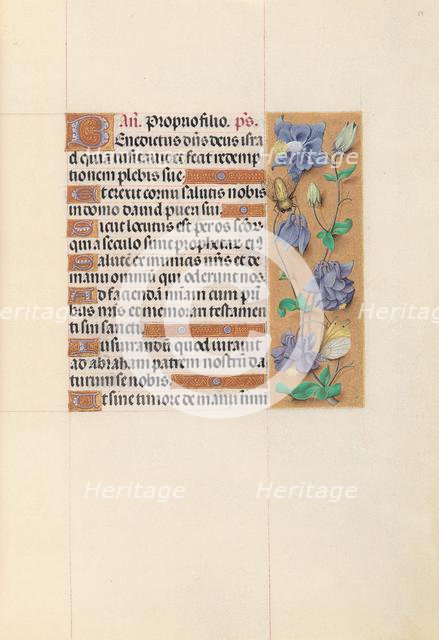 An̄. Proprio filio. ps̄.
Benedictus dn̄s deus isra
el quia visitauit et fecit redemp
tionem plebis sue.
Et erexit cornu salutis nobis
in domo dauid pueri sui.
Sicut locutus est per os sctor̄
qui a seculo sunt prophetar̄ ei9
Salutē ex inimicis nr̄is et de
manu omniū qui oderunt nos.
Ad faciendā miam cum pr̄i
bus nr̄is et memorari testamen
ti sui sancti.
Iusiurandū quod iurauit
ad abraham patrem nostrū da
turum se nobis.
Ut sine timore de manu inimi
Heritage
Heritage
Heritage
Heritage
Heritage
Heritage